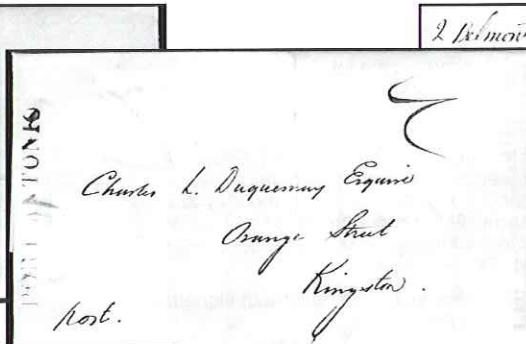 2 Belmon
PORT ANTONIO
Charles L. Duquesnay Esquire
Orange Street
Kingston.
post.